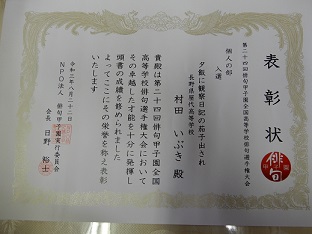 表彰状
第二十四回俳句甲子園全国高等学校俳句選手権大会
個人の部
入選
夕飯に観察日記の茄子出され
長野県屋代高等学校
村田 いぶき 殿
貴殿は第二十四回俳句甲子園全国
高等学校俳句選手権大会において
その卓越した才能を十分に発揮し
頭書の成績を修められました
よってここにその栄誉を称え表彰
いたします
令和三年八月二十二日
NPO法人 俳句甲子園実行委員会
会長 日野 裕士
俳句